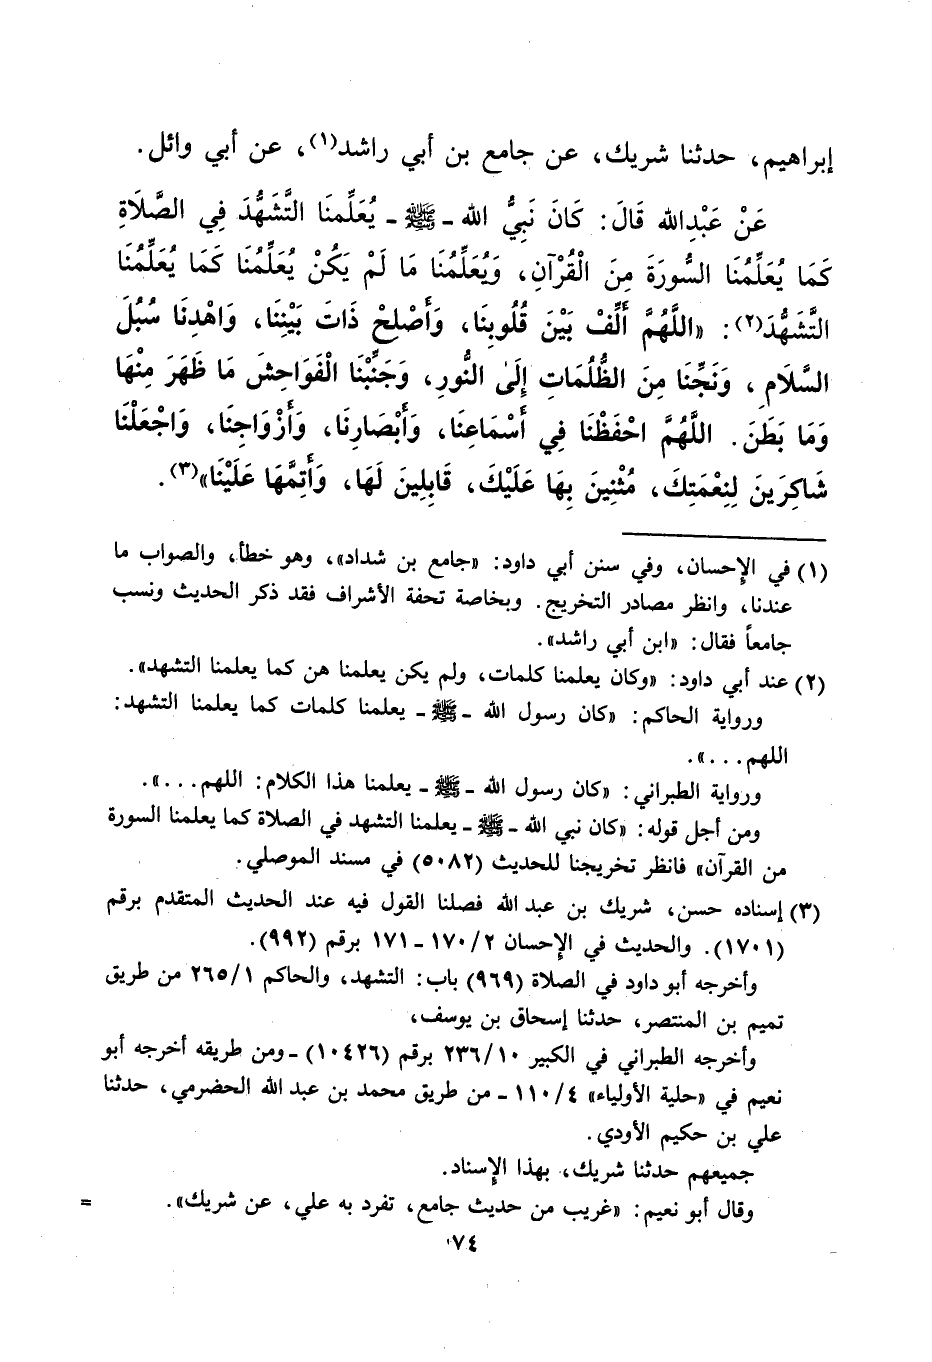 إبراهيم، حدثنا شريك، عن جامع بن أبي راشد(١)، عن أبي وائل.
عَنْ عَبْدِالله قَالَ: كَانَ نَبِيُّ الله ـ ﷺ ـ يُعَلِّمنَا التَّشَهُّدَ فِي الصَّلَاةِ
كَمَا يُعَلِّمُنَا السُّورَةَ مِنَ الْقُرْآنِ، وَيُعَلِّمُنَا مَا لَمْ يَكُنْ يُعَلِّمُنَا كَمَا يُعَلِّمُنَا
التَّشَهُّدَ(٢): «اللَّهُمَّ أَلِّفْ بَيْنَ قُلُوبِنَا، وَأَصْلِحْ ذَاتَ بَيْنِنَا، وَاهْدِنَا سُبُلَ
السَّلَامِ، وَنَجِّنَا مِنَ الظُّلُمَاتِ إِلَى النُّورِ، وَجَنِّبْنَا الْفَوَاحِشَ مَا ظَهَرَ مِنْهَا
وَمَا بَطَنَ. اللَّهُمَّ احْفَظْنَا فِي أَسْمَاعِنَا، وَأَبْصَارِنَا، وَأَزْوَاجِنَا، وَاجْعَلْنَا
شَاكِرِينَ لِنِعْمَتِكَ، مُثْنِينَ بِهَا عَلَيْكَ، قَابِلِينَ لَهَا، وَأَتِمَّهَا عَلَيْنَا»(٣).
(١) في الإحسان، وفي سنن أبي داود: «جامع بن شداد»، وهو خطأ، والصواب ما
عندنا، وانظر مصادر التخريج. وبخاصة تحفة الأشراف فقد ذكر الحديث ونسب
جامعاً فقال: «ابن أبي راشد».
(٢) عند أبي داود: «وكان يعلمنا كلمات، ولم يكن يعلمنا هن كما يعلمنا التشهد».
ورواية الحاكم: «كان رسول الله ـ ﷺ ـ يعلمنا كلمات كما يعلمنا التشهد:
اللهم...».
ورواية الطبراني: «كان رسول الله ـ ﷺ ـ يعلمنا هذا الكلام: اللهم...».
ومن أجل قوله: «كان نبي الله ـ ﷺ ـ يعلمنا التشهد في الصلاة كما يعلمنا السورة
من القرآن» فانظر تخريجنا للحديث (٥٠٨٢) في مسند الموصلي.
(٣) إسناده حسن، شريك بن عبد الله فصلنا القول فيه عند الحديث المتقدم برقم
(١٧٠١). والحديث في الإحسان ١٧٠/٢ - ١٧١ برقم (٩٩٢).
وأخرجه أبو داود في الصلاة (٩٦٩) باب: التشهد، والحاكم ٢٦٥/١ من طريق
تميم بن المنتصر، حدثنا إسحاق بن يوسف،
وأخرجه الطبراني في الكبير ٢٣٦/١٠ برقم (١٠٤٢٦) - ومن طريقه أخرجه أبو
نعيم في «حلية الأولياء» ١١٠/٤ - من طريق محمد بن عبد الله الحضرمي، حدثنا
علي بن حكيم الأودي.
جميعهم حدثنا شريك، بهذا الإسناد.
وقال أبو نعيم: «غريب من حديث جامع، تفرد به علي، عن شريك». =
٧٤